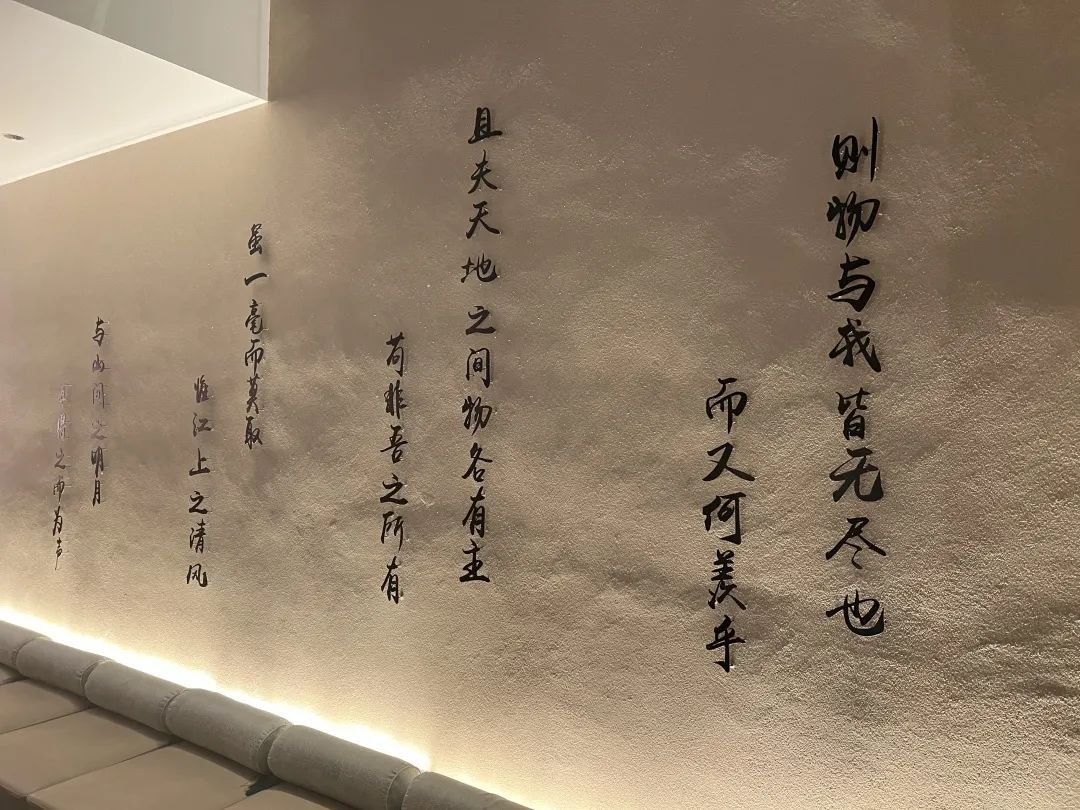 则物与我皆无尽也
而又何羡乎
且夫天地之间物各有主
苟非吾之所有
虽一毫而莫取
惟江上之清风
与山间之明月
耳得之而为声